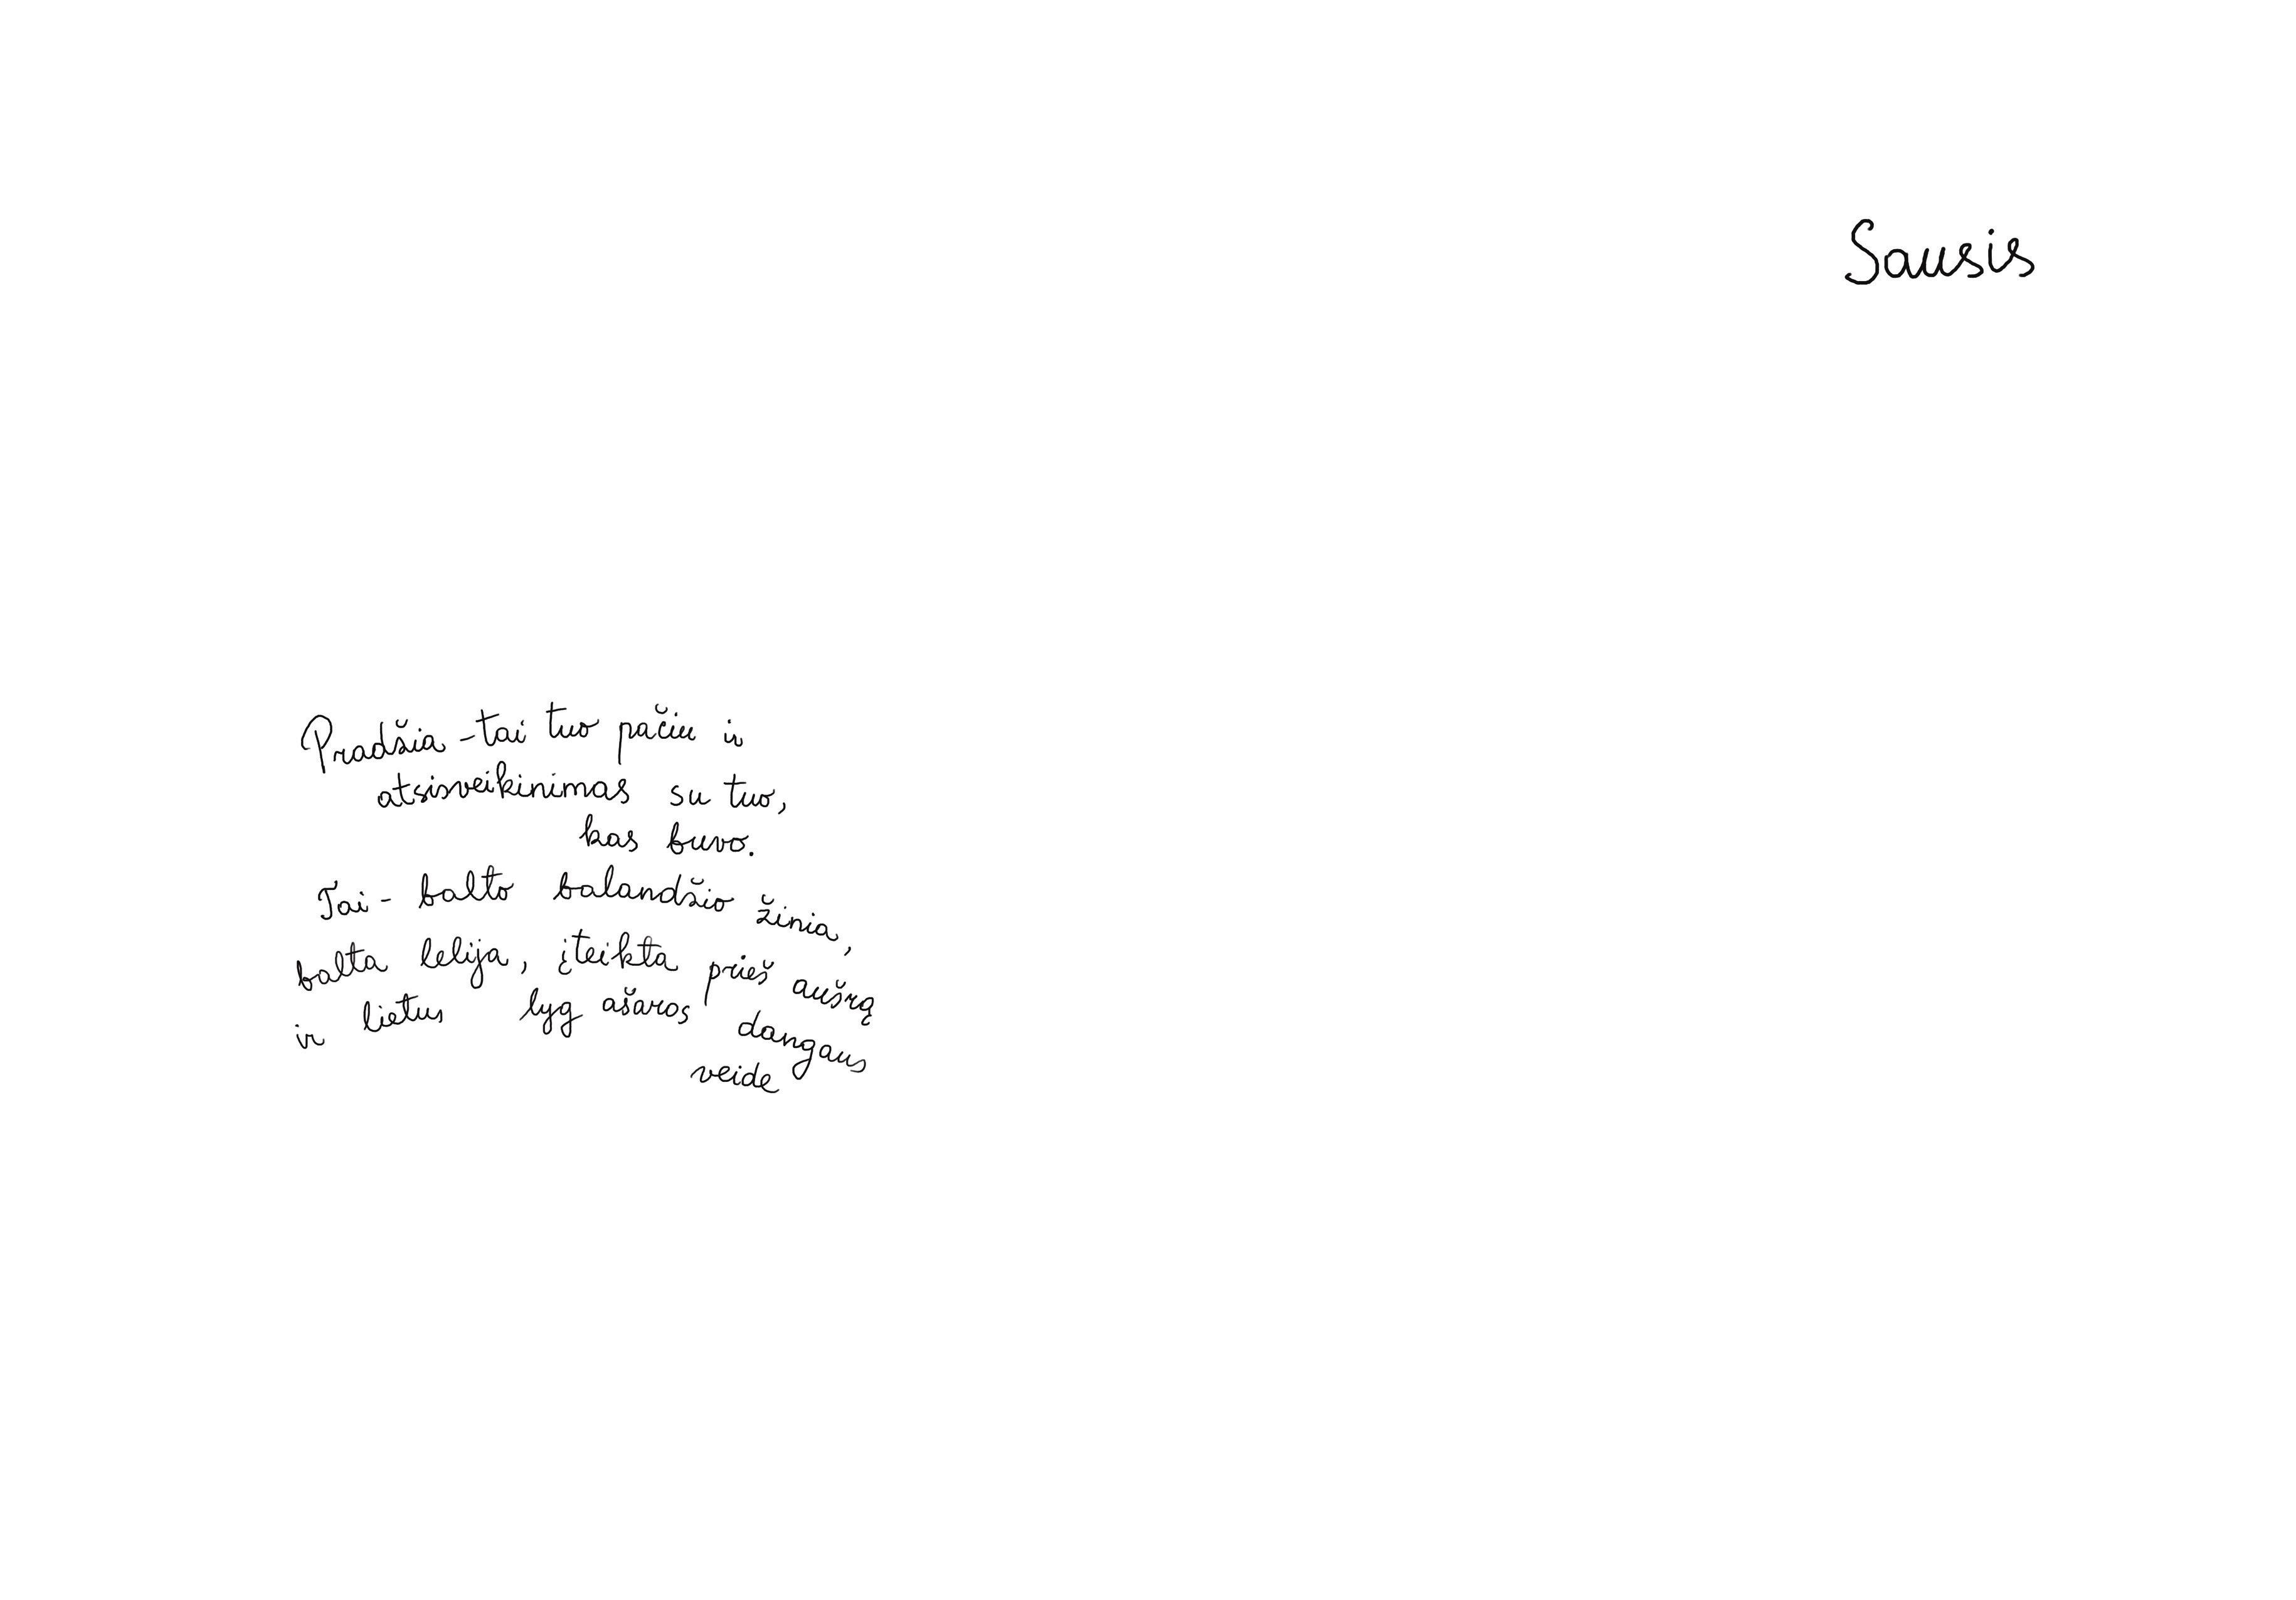 Sausis
Pradžia - tai tuo pačiu ir
atsisveikinimas su tuo,
kas buvo.
Tai - balto balandžio žinia,
balta lelija, įteikta prieš aušrą
ir lietus lyg ašaros dangaus
veide